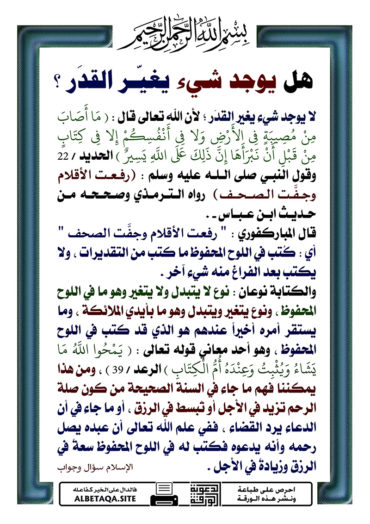 بسم الله الرحمن الرحيم
هل يوجد شيء يغيّر القدَر ؟
لا يوجد شيء يغير القدَر ؛ لأن الله تعالى قال : ( مَا أَصَابَ
مِنْ مُصِيبَةٍ فِي الْأَرْضِ وَلَا فِي أَنْفُسِكُمْ إِلَّا فِي كِتَابٍ
مِنْ قَبْلِ أَنْ نَبْرَأَهَا إِنَّ ذَلِكَ عَلَى اللَّهِ يَسِيرٌ ) الحديد / 22
وقول النبي صلى الله عليه وسلم : (رفعت الأقلام
وجفَّت الصحف) رواه الترمذي وصححه من
حديث ابن عباس - .
قال المباركفوري : " رفعت الأقلام وجفَّت الصحف "
أي : كُتب في اللوح المحفوظ ما كتب من التقديرات ، ولا
يكتب بعد الفراغ منه شيء آخر .
والكتابة نوعان : نوع لا يتبدل ولا يتغير وهو ما في اللوح
المحفوظ ، ونوع يتغير ويتبدل وهو ما بأيدي الملائكة ، وما
يستقر أمره أخيراً عندهم هو الذي قد كتب في اللوح
المحفوظ ، وهو أحد معاني قوله تعالى : ( يَمْحُوا اللَّهُ مَا
يَشَاءُ وَيُثْبِتُ وَعِنْدَهُ أُمُّ الْكِتَابِ ) الرعد / 39 ) ، ومن هذا
يمكننا فهم ما جاء في السنة الصحيحة من كون صلة
الرحم تزيد في الأجل أو تبسط في الرزق ، أو ما جاء في أن
الدعاء يرد القضاء ، ففي علم الله تعالى أن عبده يصل
رحمه وأنه يدعوه فكتب له في اللوح المحفوظ سعةً في
الرزق وزيادةً في الأجل .
الإسلام سؤال وجواب
احرص على طباعة
ونشر هذه الورقة
فالدال على الخير كفاعله
ALBETAQA.SITE